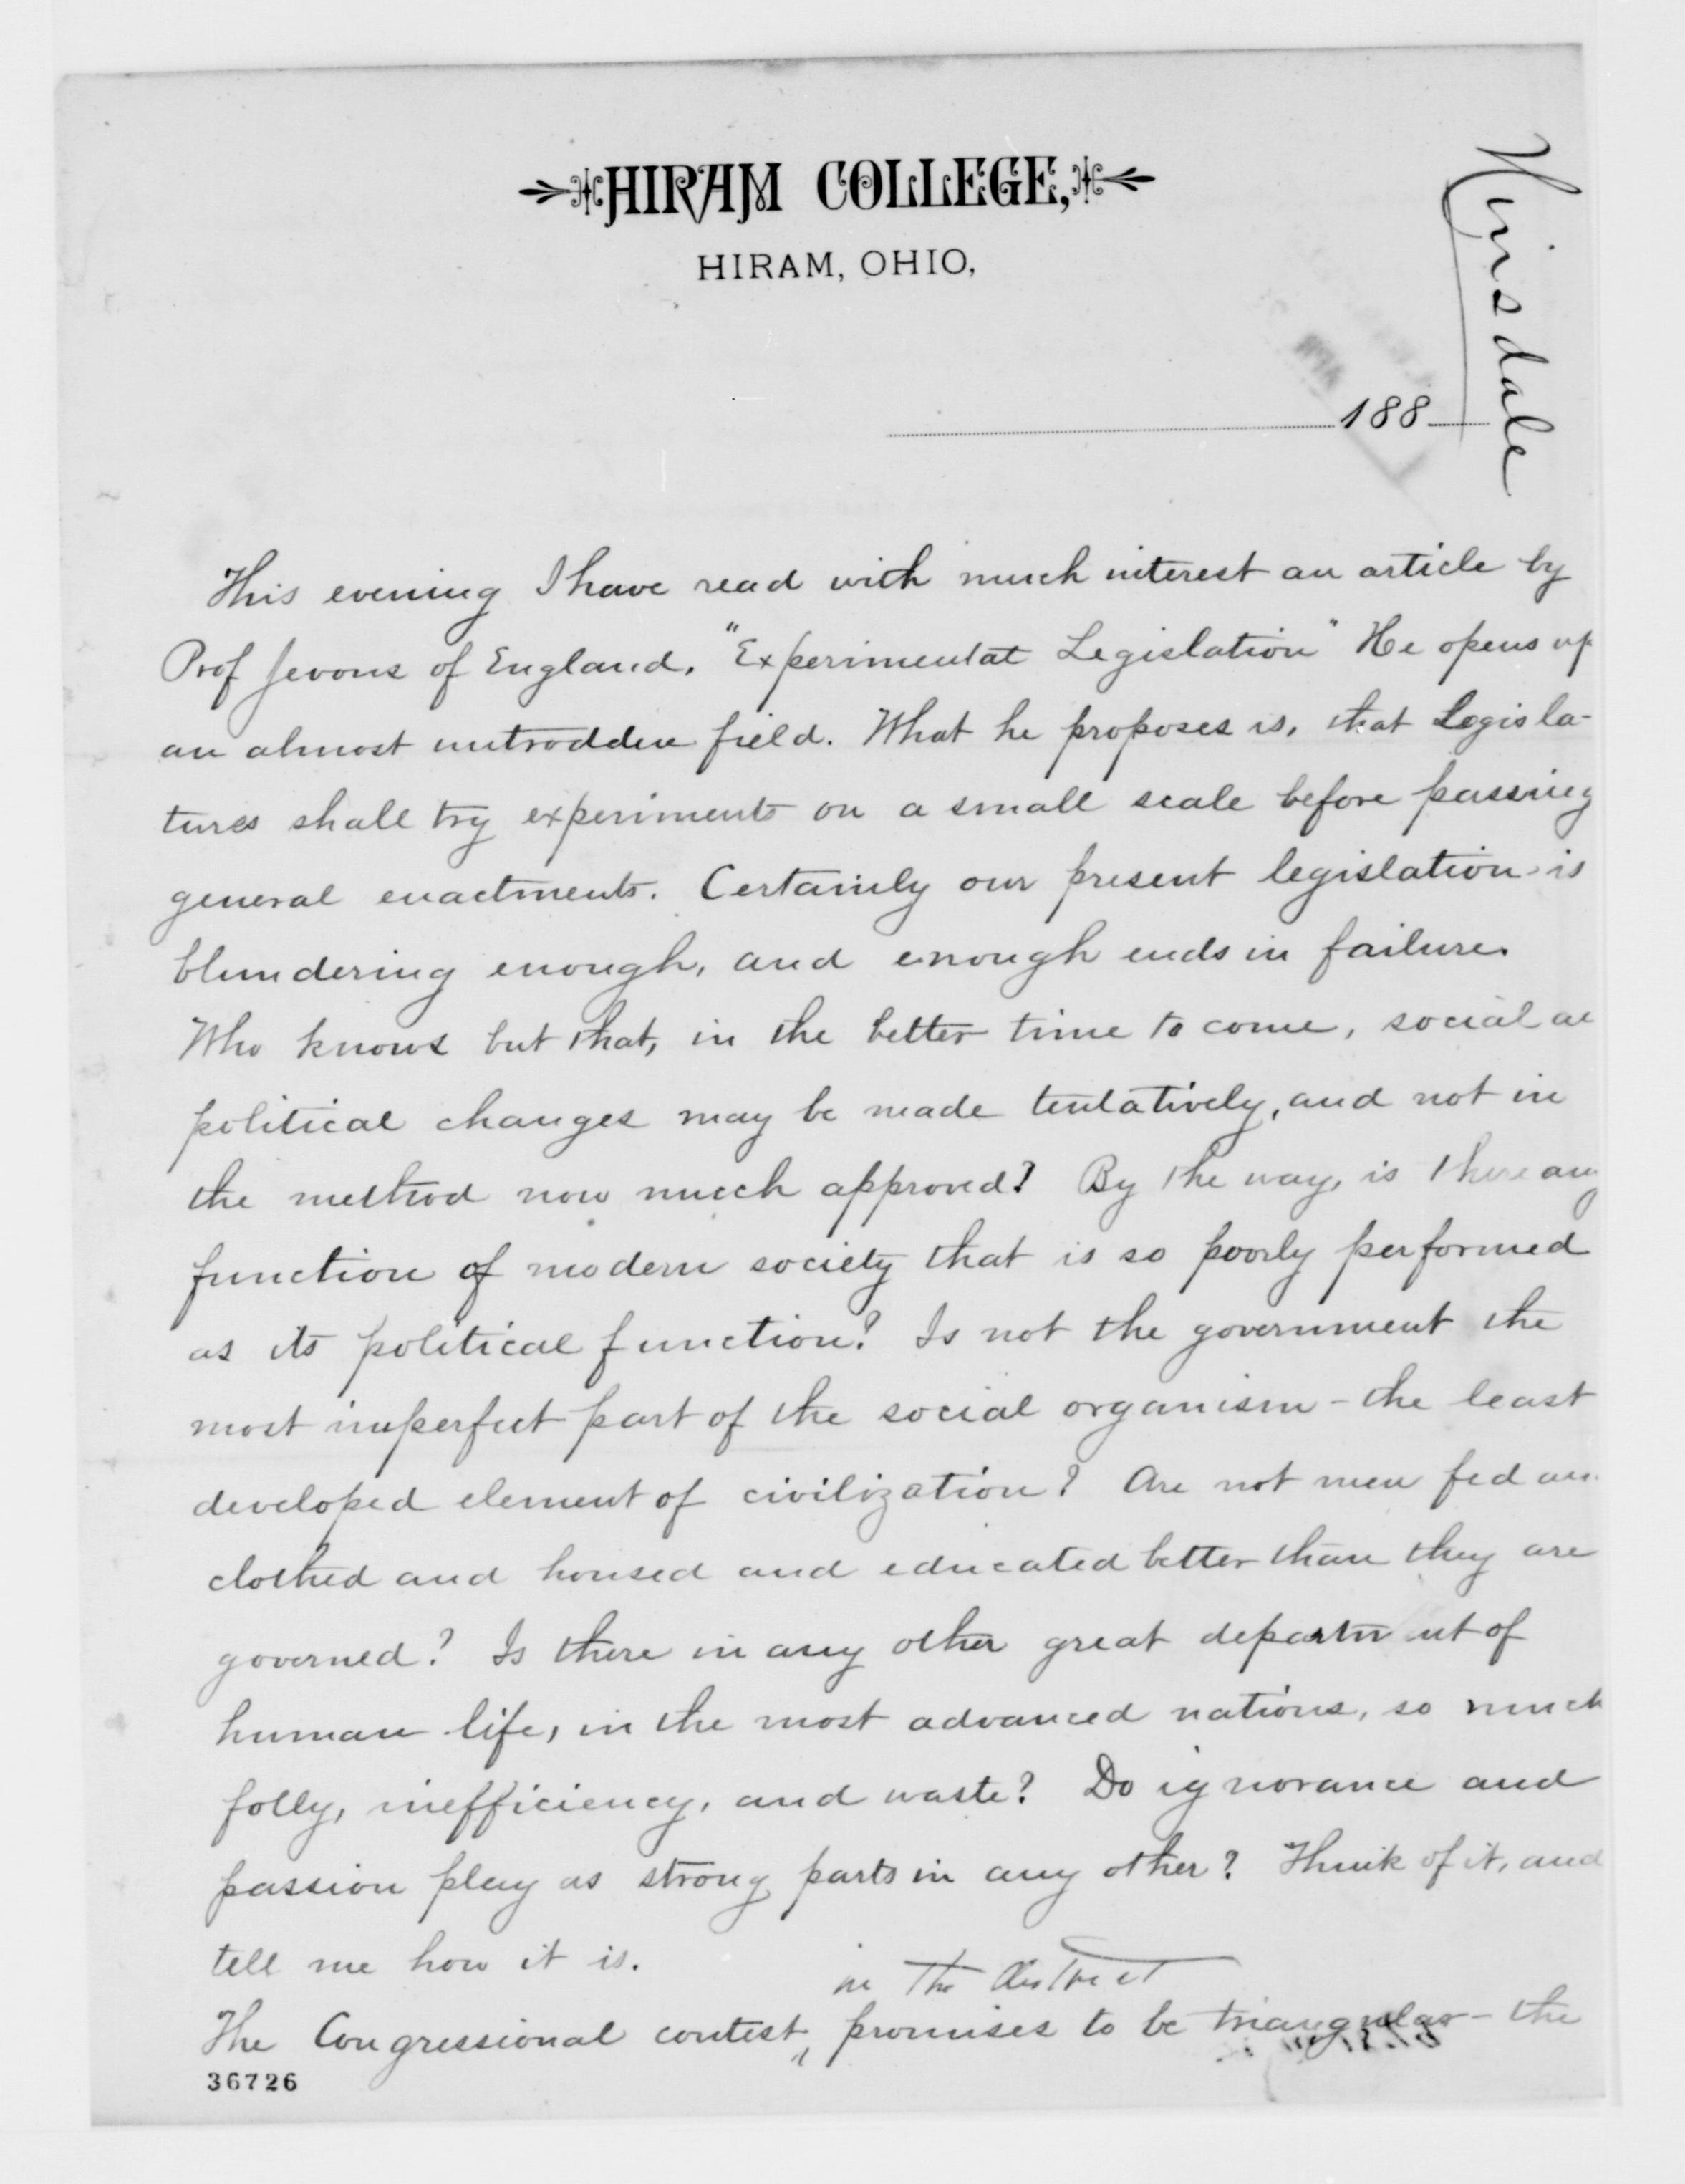 HIRAM COLLEGE,
HIRAM, OHIO,
Hinsdale
188
This evening I have read with much interest an article by
Prof Jevons of England, "Experimental Legislation" He opens up
an almost untrodden field. What he proposes is, that Legisla-
tures shall try experiments on a small scale before passing
general enactments. Certainly our present legislation is
blundering enough, and enough ends in failure.
Who knows but that, in the better time to come, social an
political changes may be made tentatively, and not in
the method now much approved? By the way, is there any
function of modern society that is so poorly performed
as its political function? Is not the government the
most imperfect part of the social organism - the least
developed element of civilization? Are not men fed an
clothed and housed and educated better than they are
governed? Is there in any other great department of
human life, in the most advanced nations, so much
folly, inefficiency, and waste? Do ignorance and
passion play as strong parts in any other? Think of it, and
tell me how it is.
in the district
The Congressional contest promises to be triangular - the
36726